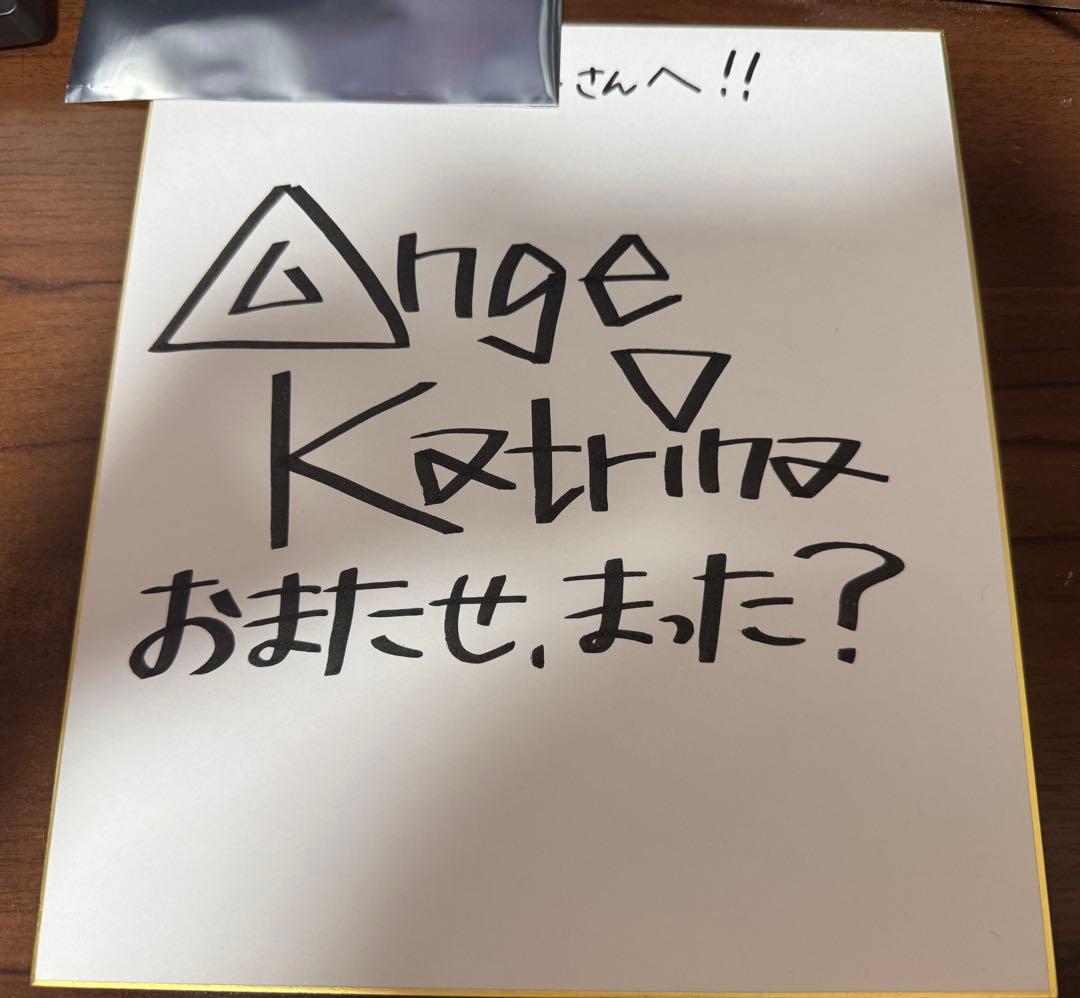 さんへ!!
Ange
Katrina
おまたせ,まった?